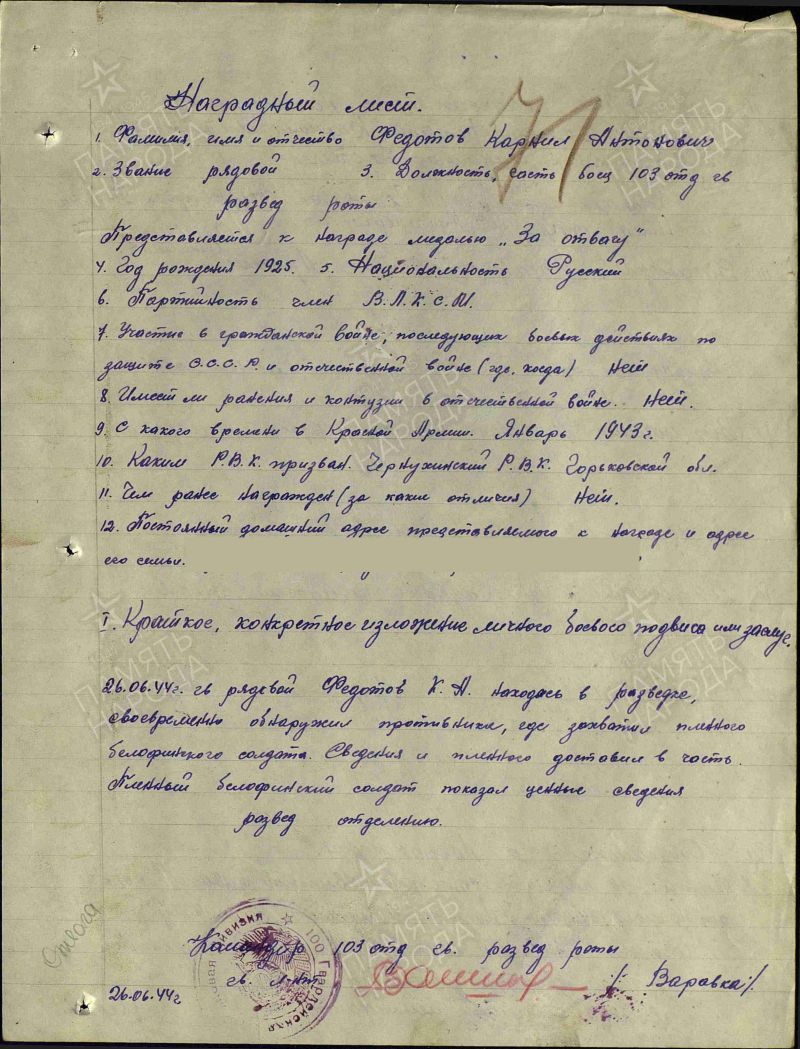 71
Наградный лист.
1. Фамилия, имя и отчество Федотов Карнил Антонович
2. Звание рядовой 3. Должность, часть боец 103 отд гв
развед роты
Представляется к награде медалью „За отвагу"
4. Год рождения 1925. 5. Национальность Русский
6. Партийность член В.Л.К.С.М.
7. Участие в гражданской войне, последующих боевых действиях по
защите С.С.С.Р. и отечественной войне (где, когда) Нет
8. Имеет ли ранения и контузии в отечественной войне. Нет.
9. С какого времени в Красной Армии. Январь 1943 г.
10. Каким Р.В.К. призван. Чернухинский Р.В.К. Горьковской обл.
11. Чем ранее награжден (за какие отличия) Нет.
12. Постоянный домашний адрес представляемого к награде и адрес
его семьи.
I. Краткое, конкретное изложение личного боевого подвига или заслуг.
26.06.44г. гв рядовой Федотов К. А. находясь в разведке,
своевременно обнаружил противника, где захватил пленного
белофинского солдата. Сведения и пленного доставил в часть.
Пленный белофинский солдат показал ценные сведения
развед отделению.
Отвага
Командир 103 отд гв. развед роты
гв. л-нт /Варавка/
26.06.44г
100 Гвардейская
дивизия
ПАМЯТЬ НАРОДА